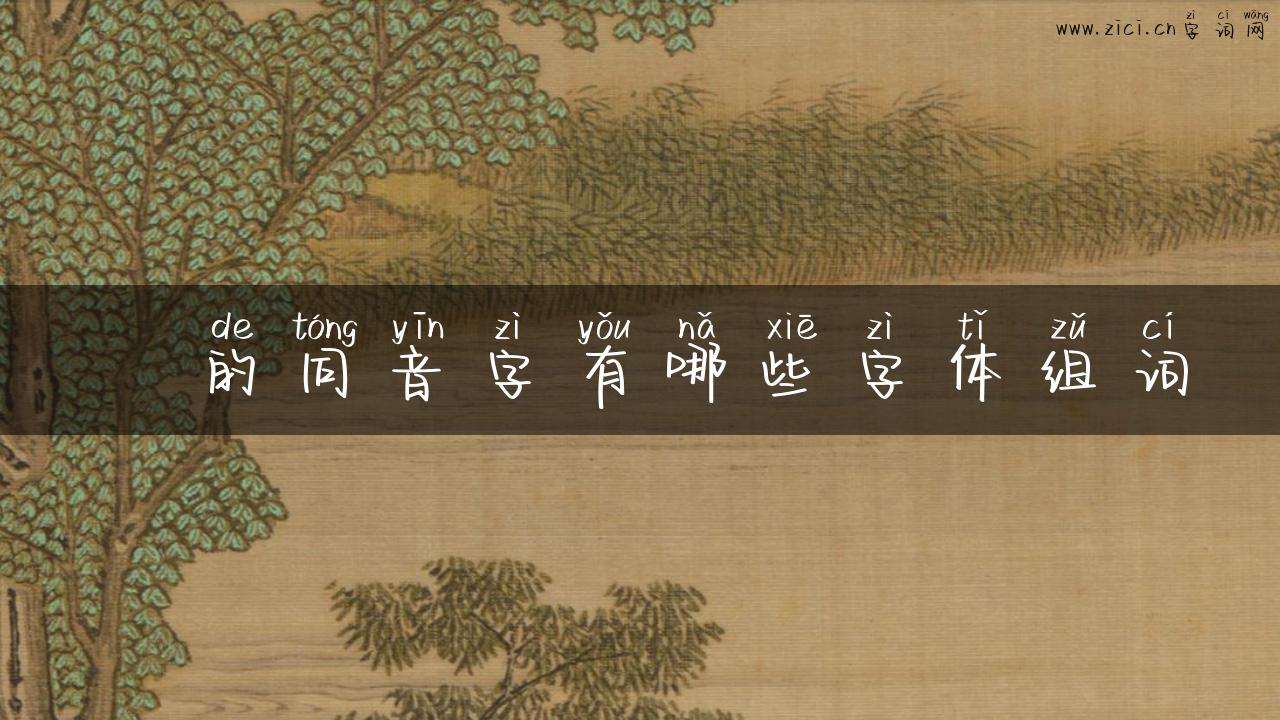 zì cí wǎng
www.zici.cn字词网
de tóng yīn zì yǒu nǎ xiē zì tǐ zǔ cí
的同音字有哪些字体组词